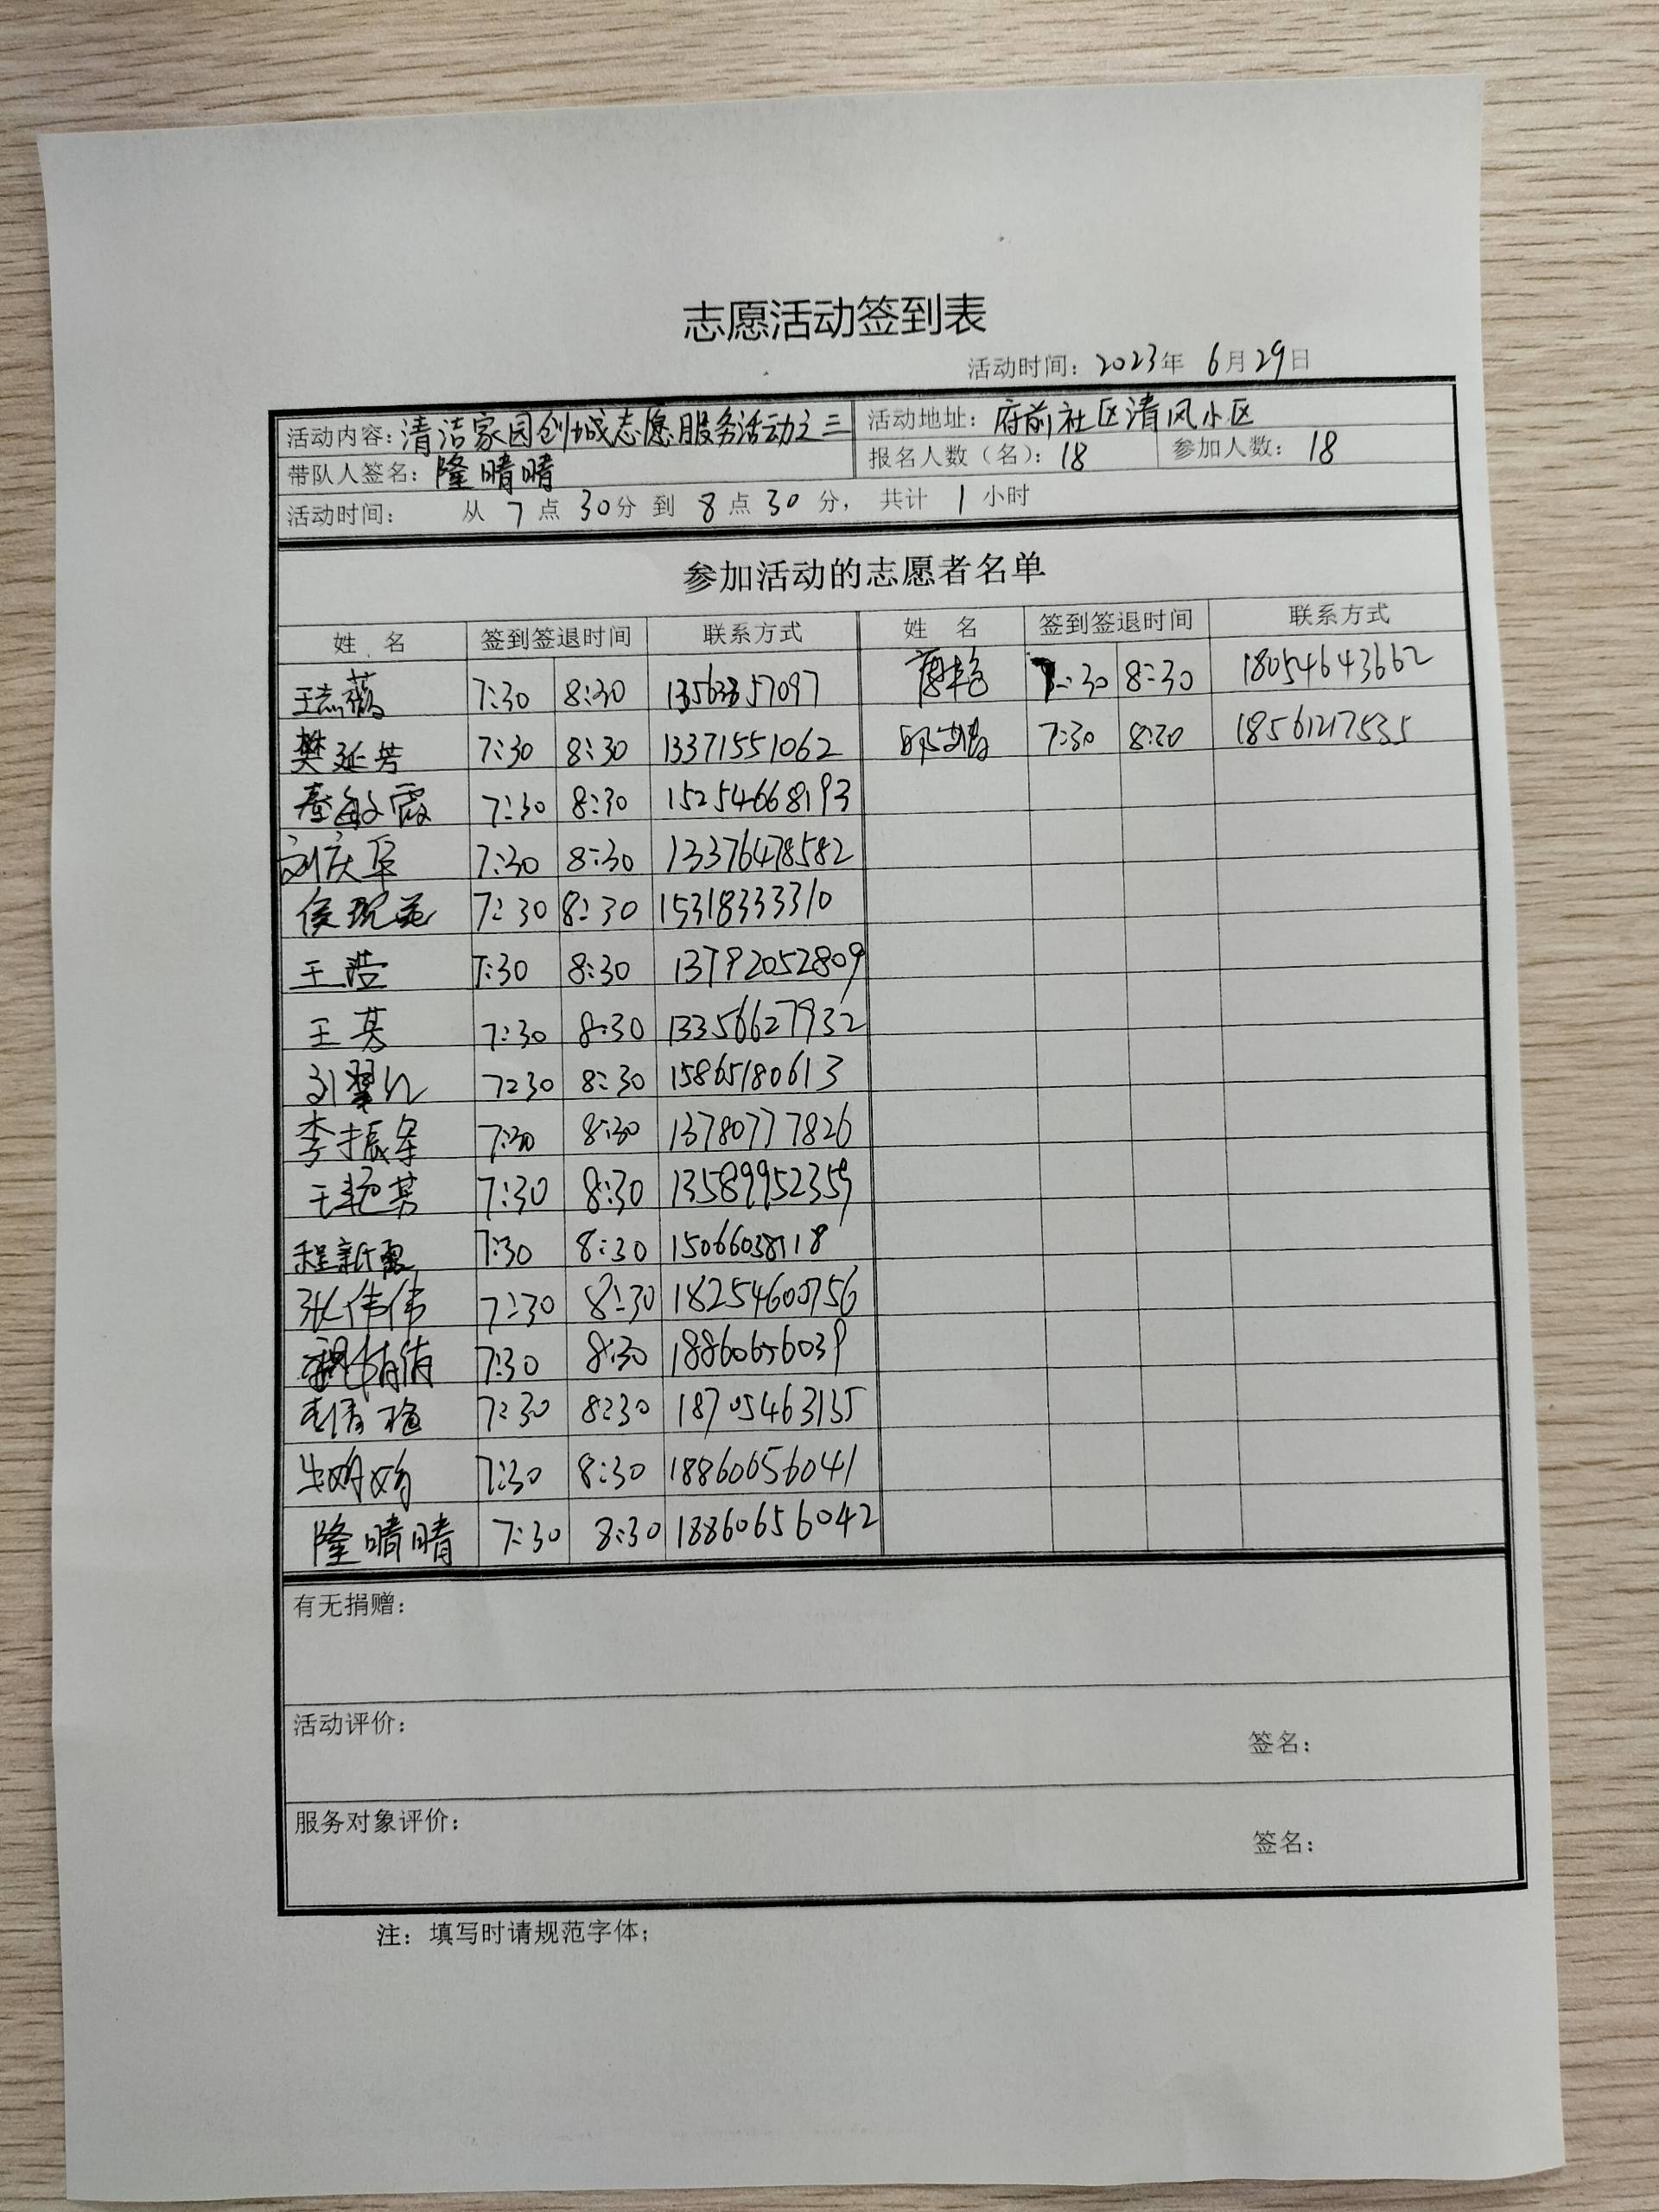 志愿活动签到表
活动时间：2023年 6月29日
活动内容：清洁家园创城志愿服务活动之三 活动地址：府前社区清风小区
带队人签名：隆晴晴 报名人数（名）：18 参加人数：18
活动时间： 从 7 点 30分 到 8 点 30 分， 共计 1 小时
参加活动的志愿者名单
姓 名 签到签退时间 联系方式 姓 名 签到签退时间 联系方式
7:30 8:30 7:30 8:30 18054643662
樊延芳 7:30 8:30 13371551062 7:30 8:30 18561217535
秦敏霞 7:30 8:30 15254668193
刘庆军 7:30 8:30 13376478582
7:30 8:30 15318333310
王浩 7:30 8:30 13792052809
王芳 7:30 8:30 13356627932
7:30 8:30 15865180613
李振军 7:30 8:30 13780777826
7:30 8:30 13589952359
程新霞 7:30 8:30
张伟伟 7:30 8:30 18254600756
7:30 8:30 18860656039
7:30 8:30 18705463135
7:30 8:30 18860656041
隆晴晴 7:30 8:30 18860656042
有无捐赠：
活动评价：
签名：
服务对象评价：
签名：
注：填写时请规范字体；